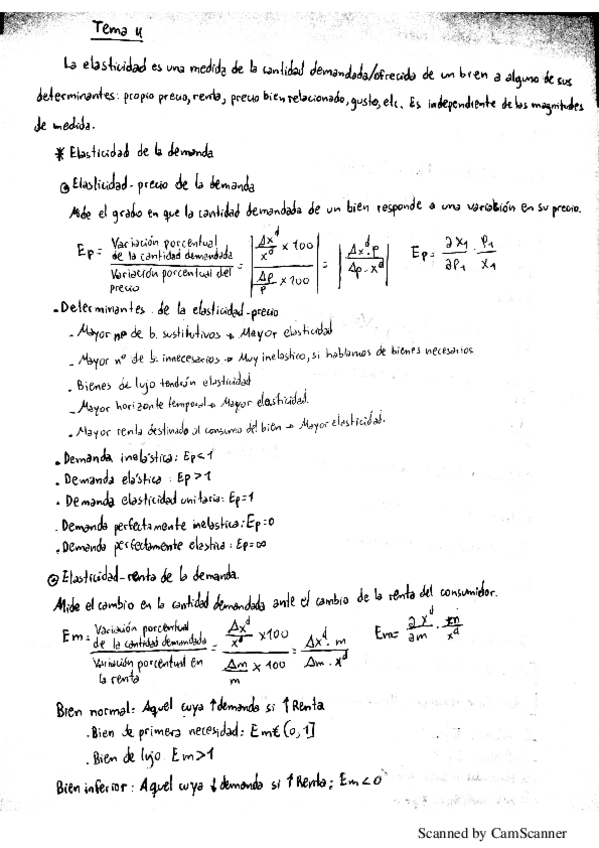 Tema 4
La elasticidad es una medida de la cantidad demandada/ofrecida de un bien a alguno de sus
determinantes: propio precio, renta, precio bien relacionado, gusto, etc. Es independiente de las magnitudes
de medida.
* Elasticidad de la demanda
Elasticidad-precio de la demanda
Mide el grado en que la cantidad demandada de un bien responde a una variación en su precio.
Ep = Variación porcentual de la cantidad demandada / Variación porcentual del precio = | (Δx^d / x^d × 100) / (Δp / p × 100) | = | Δx^d · p / Δp · x^d |   Ep = ∂x1 / ∂p1 · p1 / x1
- Determinantes de la elasticidad-precio
- Mayor nº de b. sustitutivos → Mayor elasticidad
- Mayor nº de b. innecesarios → Muy inelastico, si hablamos de bienes necesarios
- Bienes de lujo tendrán elasticidad
- Mayor horizonte temporal → Mayor elasticidad.
- Mayor renta destinado al consumo del bien → Mayor elasticidad.
. Demanda inelástica: Ep<1
. Demanda elástica: Ep>1
. Demanda elasticidad unitaria: Ep=1
. Demanda perfectamente inelastica: Ep=0
. Demanda perfectamente elastica: Ep=∞
Elasticidad-renta de la demanda.
Mide el cambio en la cantidad demandada ante el cambio de la renta del consumidor.
Em = Variación porcentual de la cantidad demandada / Variación porcentual en la renta = (Δx^d / x^d × 100) / (Δm / m × 100) = Δx^d · m / Δm · x^d   Em = ∂x^d / ∂m · m / x^d
Bien normal: Aquel cuya ↑demanda si ↑Renta
. Bien de primera necesidad: Em∈(0,1]
. Bien de lujo Em>1
Bien inferior: Aquel cuya ↓demanda si ↑Renta; Em<0
Scanned by CamScanner